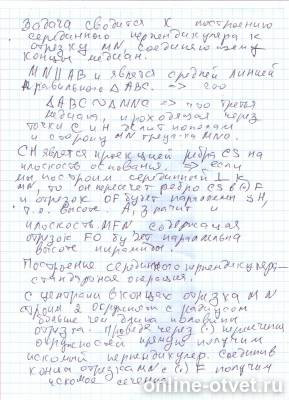 Задача сводится к построению
серединного перпендикуляра к
отрезку MN, соединяющему
концы медиан.
MN || AB и является средней линией
правильного Δ ABC. =>
Δ ABC ∽ Δ MNC => что третья
медиана, проходящая через
точки C и H делит пополам
и сторону MN треуг-ка MNC.
CH является проекцией ребра CS на
плоскость основания. => если
мы построим серединный ⊥ к
MN, то он пересечет ребро CS в (·) F
и отрезок OF будет параллелен SH,
т.е. высоте. А, значит и
плоскость MFN содержащая
отрезок FO будет параллельна
высоте пирамиды.
Построение серединного перпендикуляра-
стандартная операция.
С центрами в концах отрезка MN
строим 2 окружности с радиусом
больше чем длина половины
отрезка. Проведя через (·) пересечения
окружностей прямую получим
искомый перпендикуляр. Соединив
концы отрезка MN с (·) F получим
искомое сечение.
online-otvet.ru